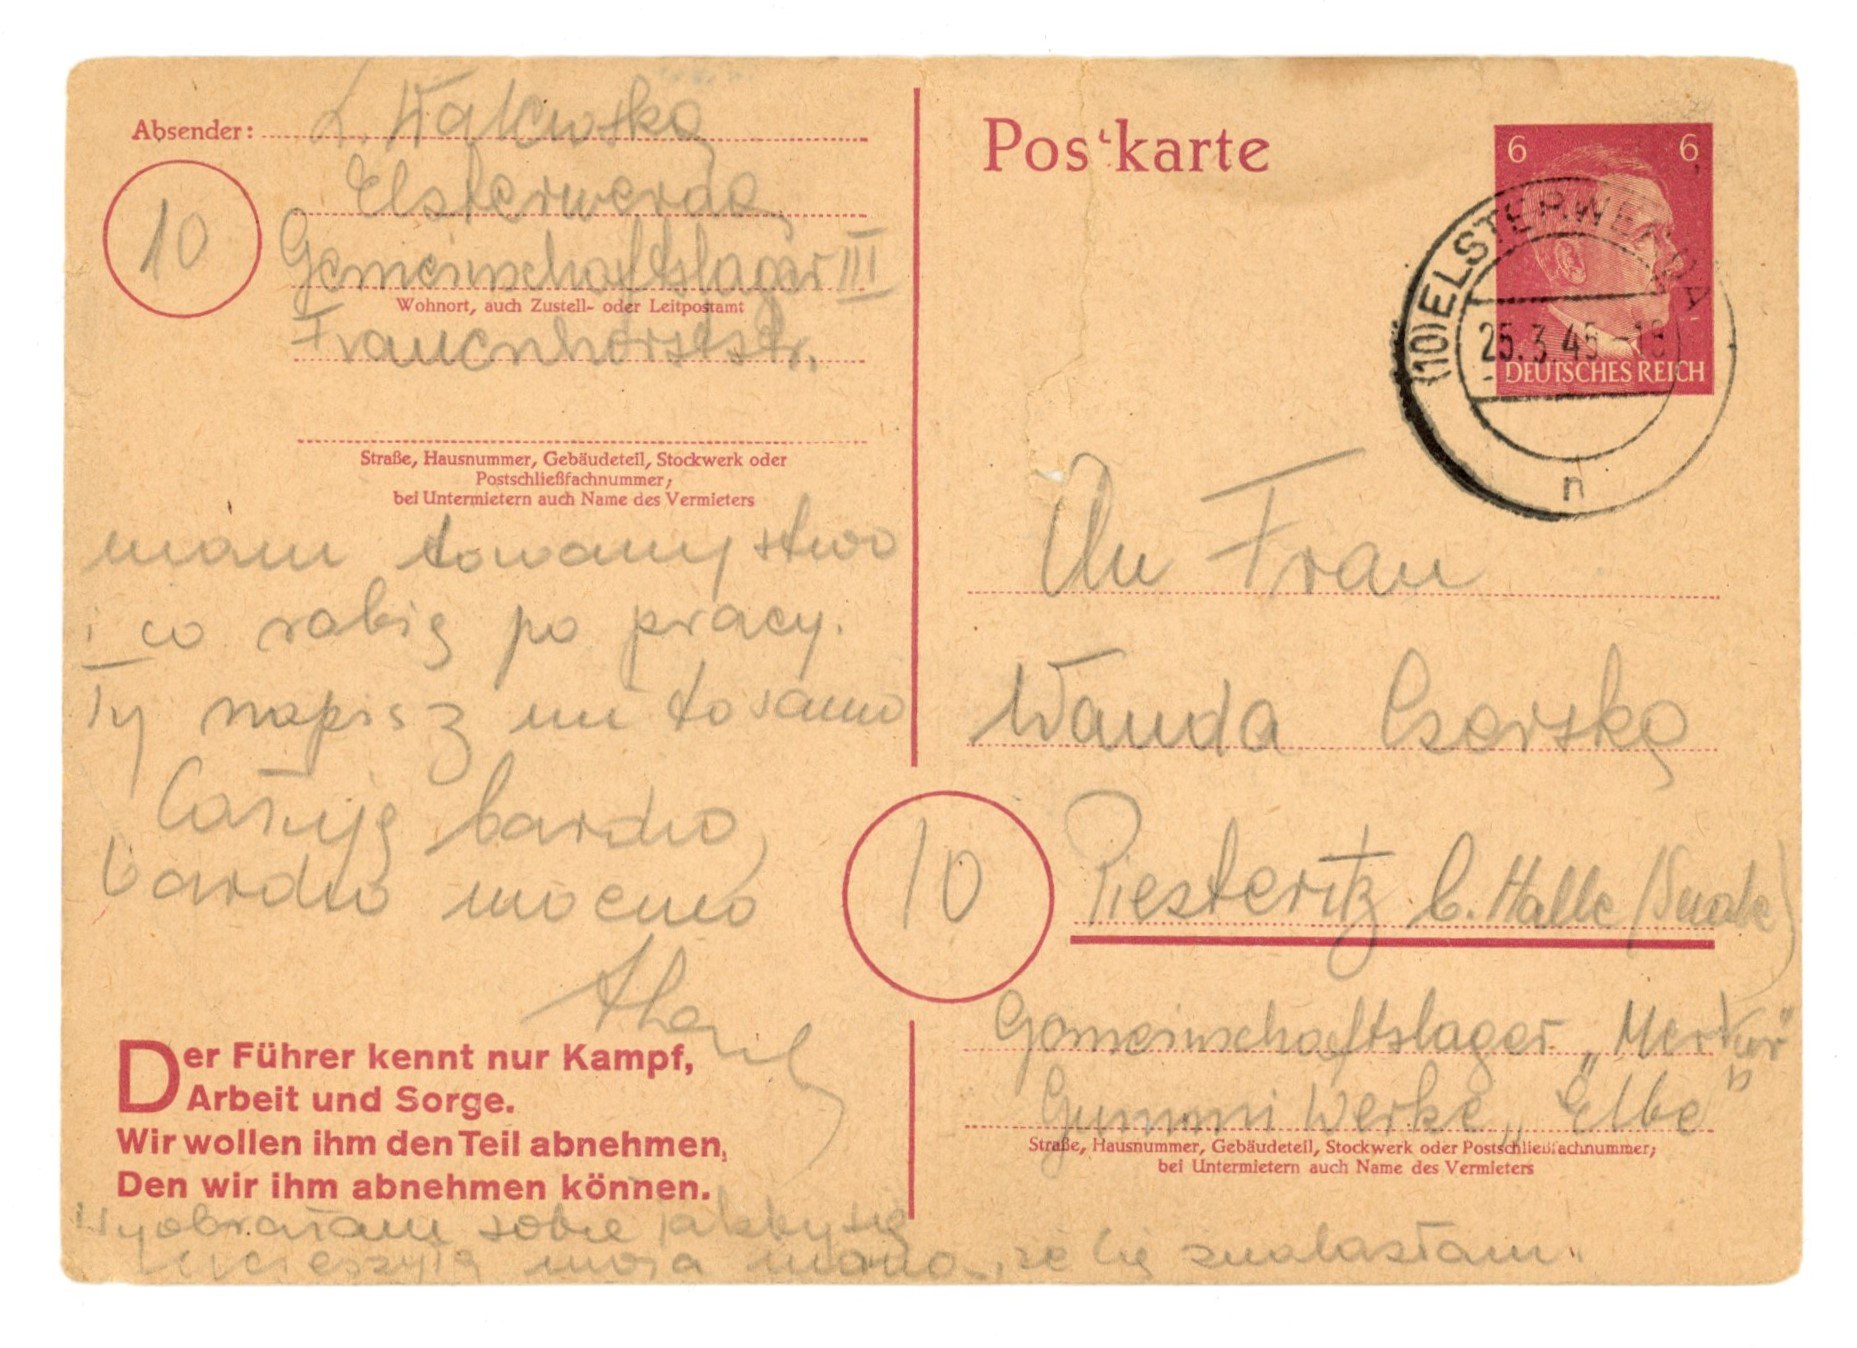 Absender: L. Walewska
Elsterwerda,
10
Gemeinschaftslager III
Wohnort, auch Zustell- oder Leitpostamt
Frauenhorststr.
Straße, Hausnummer, Gebäudeteil, Stockwerk oder
Postschließfachnummer;
bei Untermietern auch Name des Vermieters
mam towarzystwo
i co robię po pracy.
Ty napisz mi to samo
Całuję bardzo,
bardzo mocno
Der Führer kennt nur Kampf,
Arbeit und Sorge.
Wir wollen ihm den Teil abnehmen,
Den wir ihm abnehmen können.
Wyobrażam sobie jakby się
ucieszyła moja mama, że Cię znalazłam.
Postkarte
6 6
DEUTSCHES REICH
(10) ELSTERWERDA
25.3.45.-18
n
An Frau
Wanda Czerska
10
Piesteritz b. Halle (Saale)
Gemeinschaftslager „Merkur"
Gummi Werke „Elbe"
Straße, Hausnummer, Gebäudeteil, Stockwerk oder Postschließfachnummer;
bei Untermietern auch Name des Vermieters